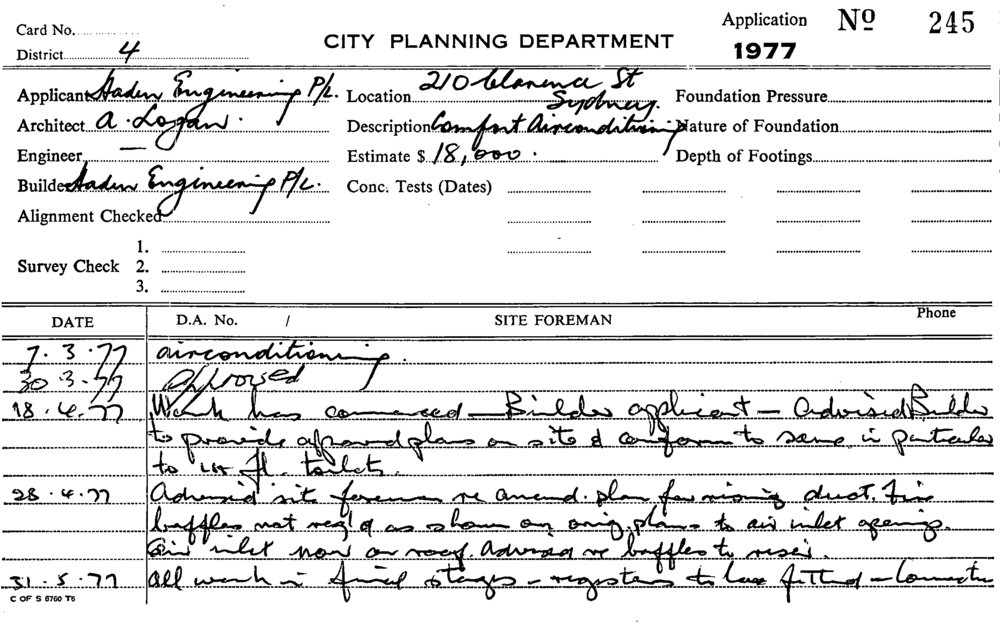 Card No.
District 4
CITY PLANNING DEPARTMENT
Application Nº 245
1977
Applicant Haden Engineering P/L.
Location 210 Clarence St
Sydney.
Foundation Pressure
Architect A. Logan.
Description Comfort Airconditioning
Nature of Foundation
Engineer —
Estimate $ 18,000.
Depth of Footings
Builder Haden Engineering P/L.
Conc. Tests (Dates)
Alignment Checked
Survey Check 1.
2.
3.
DATE D.A. No. / SITE FOREMAN Phone
7.3.77 airconditioning.
30.3.77 approved
18.4.77 Work has commenced — Builder applicant — Advised Builder
to provide approved plans on site & conform to same in particular
to fl. toilets.
28.4.77 Advised site foreman re amend. plan for rising duct. Fire
baffles not req'd as shown on orig. plans to air inlet openings.
Air inlet now on roof. Advised re baffles to riser.
31.5.77 All work in final stages — registers to be fitted —
C OF S 6760 T6